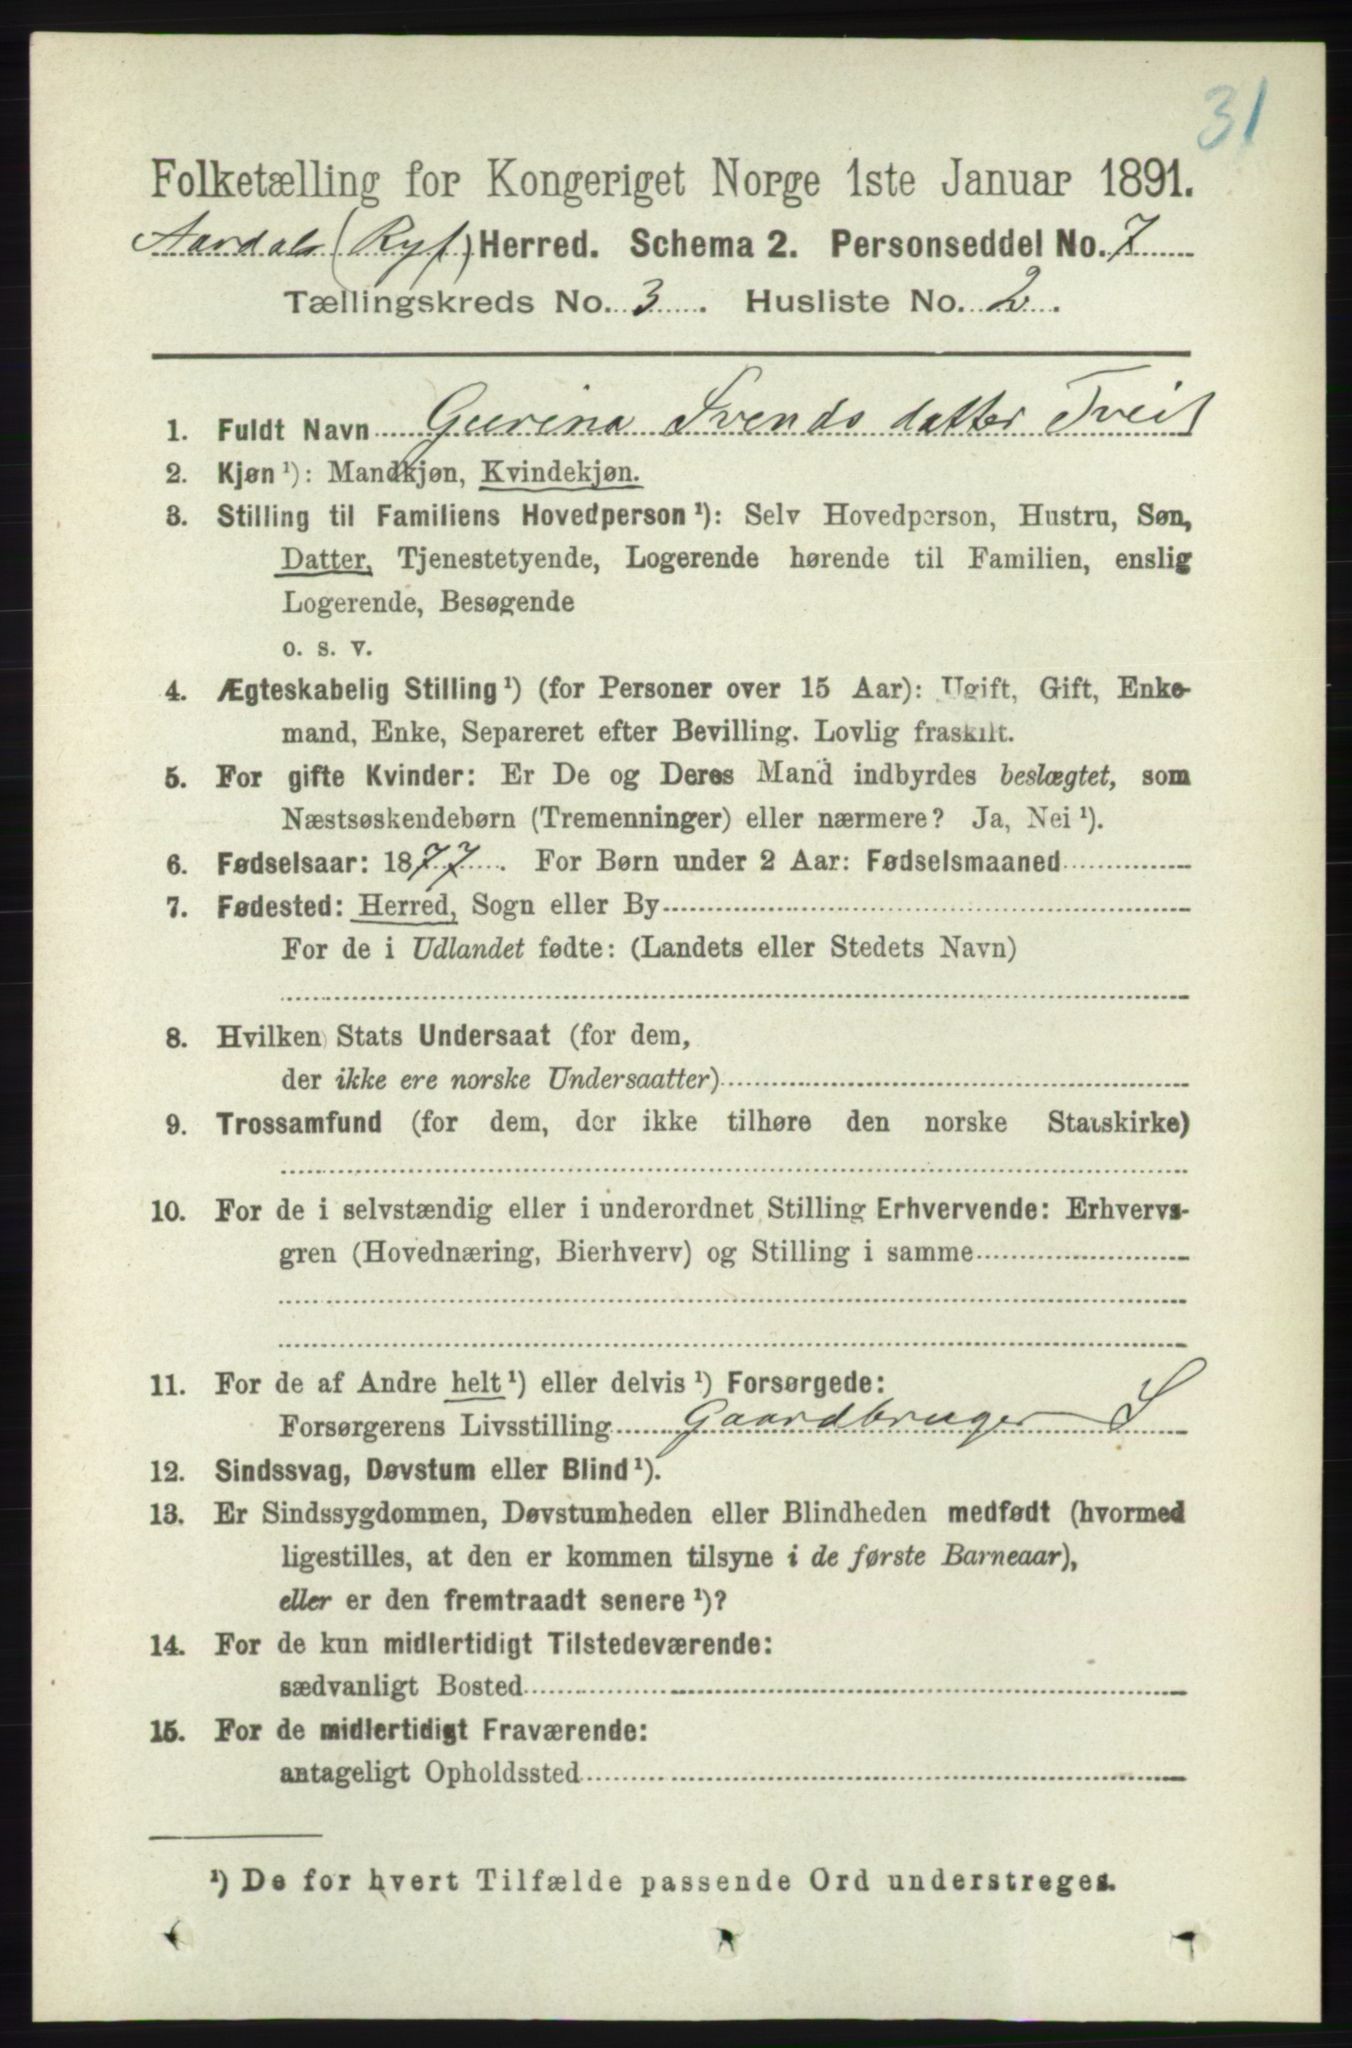 31
Folketælling for Kongeriget Norge 1ste Januar 1891.
Aardals (Ryf) Herred. Schema 2. Personseddel No. 7
Tællingskreds No. 3. Husliste No. 2.
1. Fuldt Navn Gurina Svends datter Tveit
2. Kjøn ¹): Mandkjøn, Kvindekjøn.
3. Stilling til Familiens Hovedperson ¹): Selv Hovedperson, Hustru, Søn,
Datter, Tjenestetyende, Logerende hørende til Familien, enslig
Logerende, Besøgende
o. s. v.
4. Ægteskabelig Stilling ¹) (for Personer over 15 Aar): Ugift, Gift, Enke-
mand, Enke, Separeret efter Bevilling. Lovlig fraskilt.
5. For gifte Kvinder: Er De og Deres Mand indbyrdes beslægtet, som
Næstsøskendebørn (Tremenninger) eller nærmere? Ja, Nei ¹).
6. Fødselsaar: 1877. For Børn under 2 Aar: Fødselsmaaned
7. Fødested: Herred, Sogn eller By
For de i Udlandet fødte: (Landets eller Stedets Navn)
8. Hvilken Stats Undersaat (for dem,
der ikke ere norske Undersaatter)
9. Trossamfund (for dem, der ikke tilhøre den norske Statskirke)
10. For de i selvstændig eller i underordnet Stilling Erhvervende: Erhvervs-
gren (Hovednæring, Bierhverv) og Stilling i samme
11. For de af Andre helt ¹) eller delvis ¹) Forsørgede:
Forsørgerens Livsstilling Gaardbruger S
12. Sindssvag, Døvstum eller Blind ¹).
13. Er Sindssygdommen, Døvstumheden eller Blindheden medfødt (hvormed
ligestilles, at den er kommen tilsyne i de første Barneaar),
eller er den fremtraadt senere ¹)?
14. For de kun midlertidigt Tilstedeværende:
sædvanligt Bosted
15. For de midlertidigt Fraværende:
antageligt Opholdssted
¹) De for hvert Tilfælde passende Ord understreges.